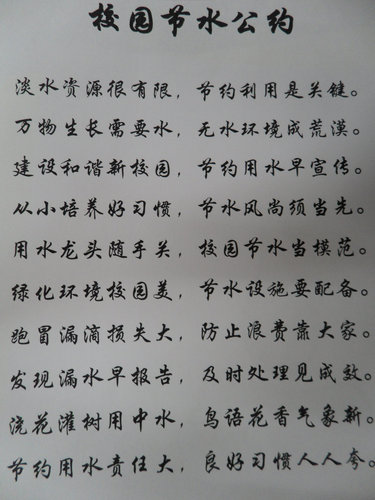 校园节水公约
淡水资源很有限，节约利用是关键。
万物生长需要水，无水环境成荒漠。
建设和谐新校园，节约用水早宣传。
从小培养好习惯，节水风尚须当先。
用水龙头随手关，校园节水当模范。
绿化环境校园美，节水设施要配备。
跑冒漏滴损失大，防止浪费靠大家。
发现漏水早报告，及时处理见成效。
浇花灌树用中水，鸟语花香气象新。
节约用水责任大，良好习惯人人夸。